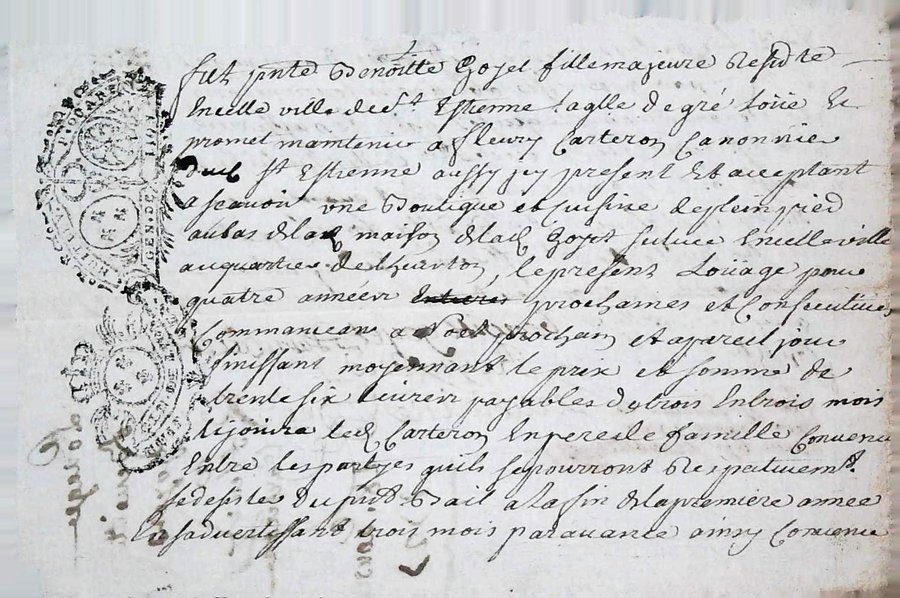 fut pnte Benoitte Goyet fille majeure Residte
En celle ville de St Estienne laqlle de gré loüe Et
promet maintenir a fleury Carteron Canonnier
dud St Estienne aussy icy present Et acceptant
a scavoir une Boutique et Cuisine de plein pied
au bas de lad maison de lad Goyet situee En celle ville
au quartier de , le present Loüage pour
quatre années Entieres prochaines et Consecutives
Commancant a Noel prochain et a pareil jour
finissant moyennant le prix et somme de
trente six Livres payables de trois En trois mois
led Carteron En pere de famille Convenu
Entre les partyes quils se pourront Respativemt
se desiste du pnt Bail a la fin de la premiere annee
En sadvertissant trois mois paravant ainsy Convenu
GEN. DE LION